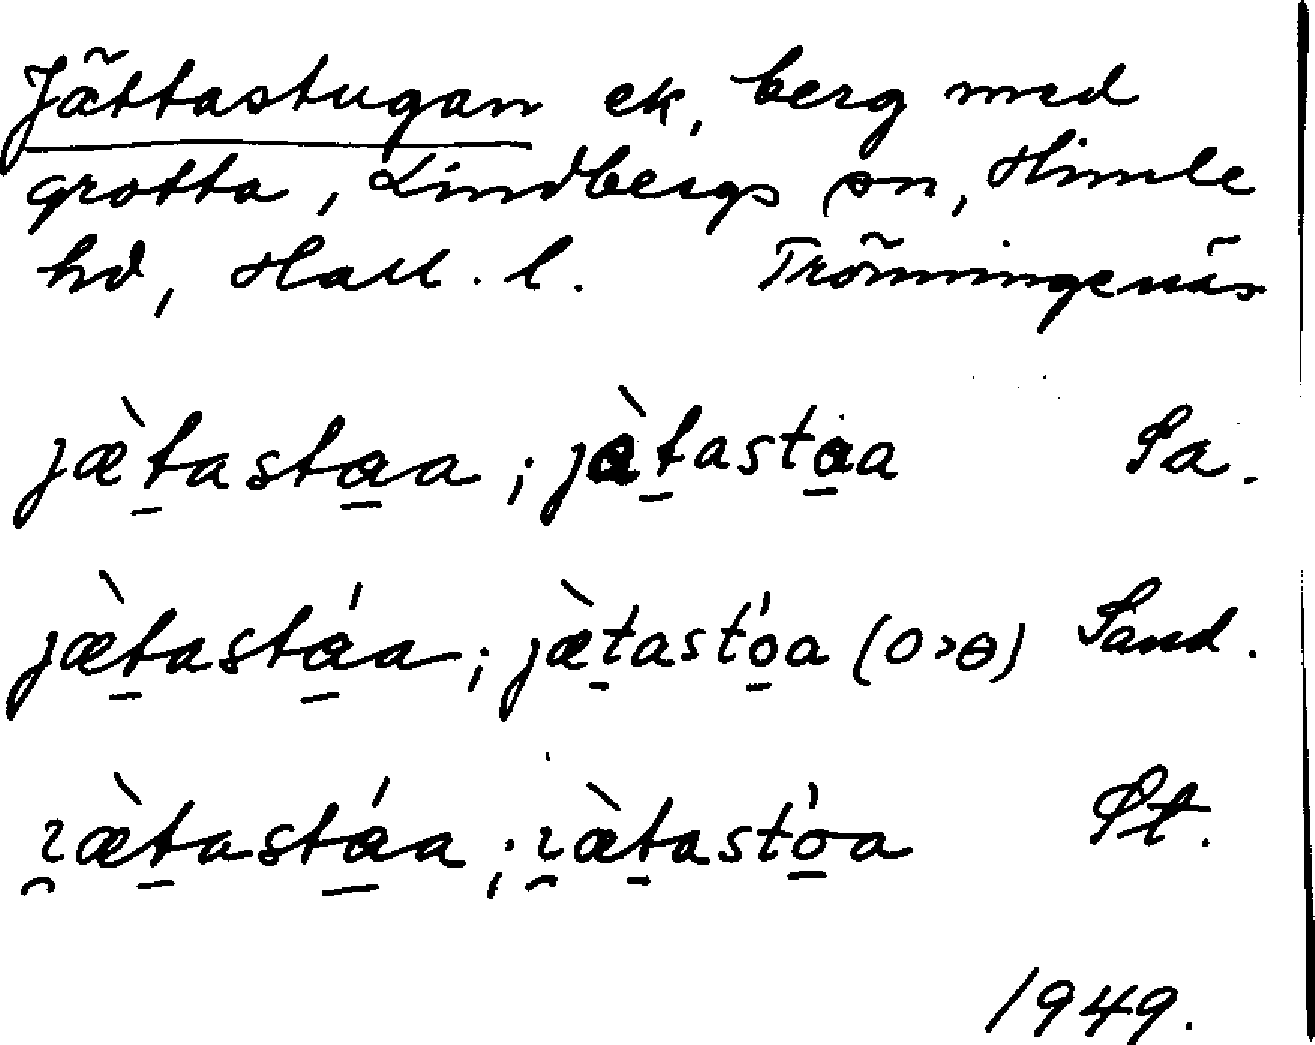 Jättastugan ek, berg med
grotta, Lindbergs sn, Himle
hd, Hall. l. Trönningenäs
jæ̀t̠asta̠a ; jàt̠asta̠a Sa.
jæ̀t̠astá̠a ; jæ̀t̠astó̠a (o>ɵ) Sand.
ɿ̯æ̀t̠astá̠a ; ɿ̯æ̀t̠astó̠a St.
1949.